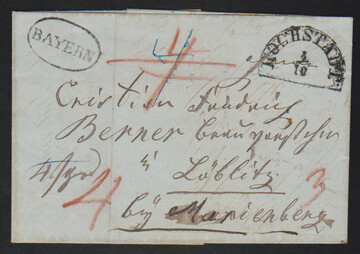 BAYERN
HÖCHSTADT
3
10
4
Cristian Friedrig
Berner
à
Löblitz
by Marienberg
4
3